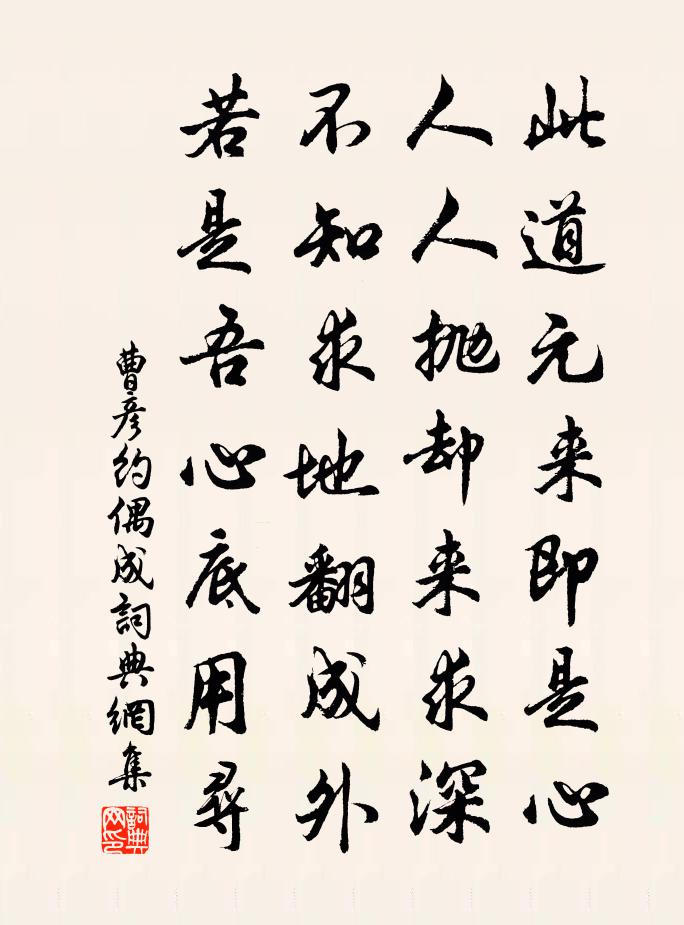 此道元来即是心
人人抛却来求深
不知求地翻成外
若是吾心底用尋
曹彦约偶成詞典網集
詞典網印